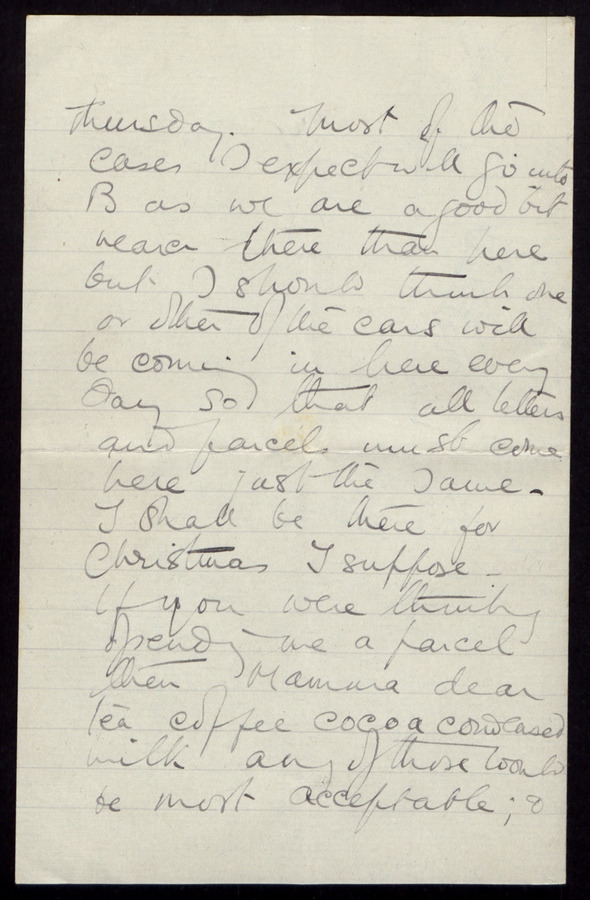 Thursday. Most of the
cases I expect will go into
B as we are a good bit
nearer there than here
but I should think one
or other of the cars will
be coming in here every
day so that all letters
and parcels must come
here just the same.
I shall be there for
Christmas I suppose -
If you were thinking
of sending me a parcel
then Mamma dear
tea coffee cocoa condensed
milk any of those would
be most acceptable; &